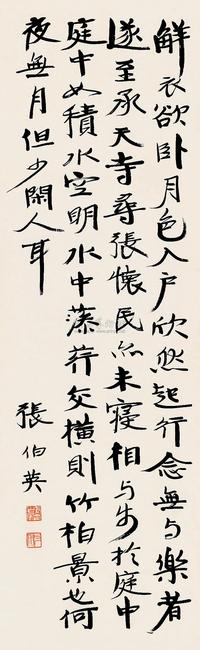 解衣欲卧月色入户欣然起行念無与樂者
遂至承天寺尋張懷民亦未寢相与步於庭中
庭中如積水空明水中藻荇交橫則竹柏景也何
夜無月但少閑人耳
張伯英